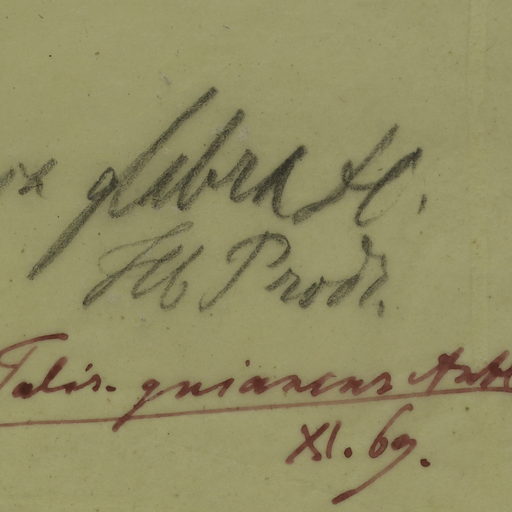 glabra DC.
Hb Prodr.
Talis. guianens Aubl
XI. 69.